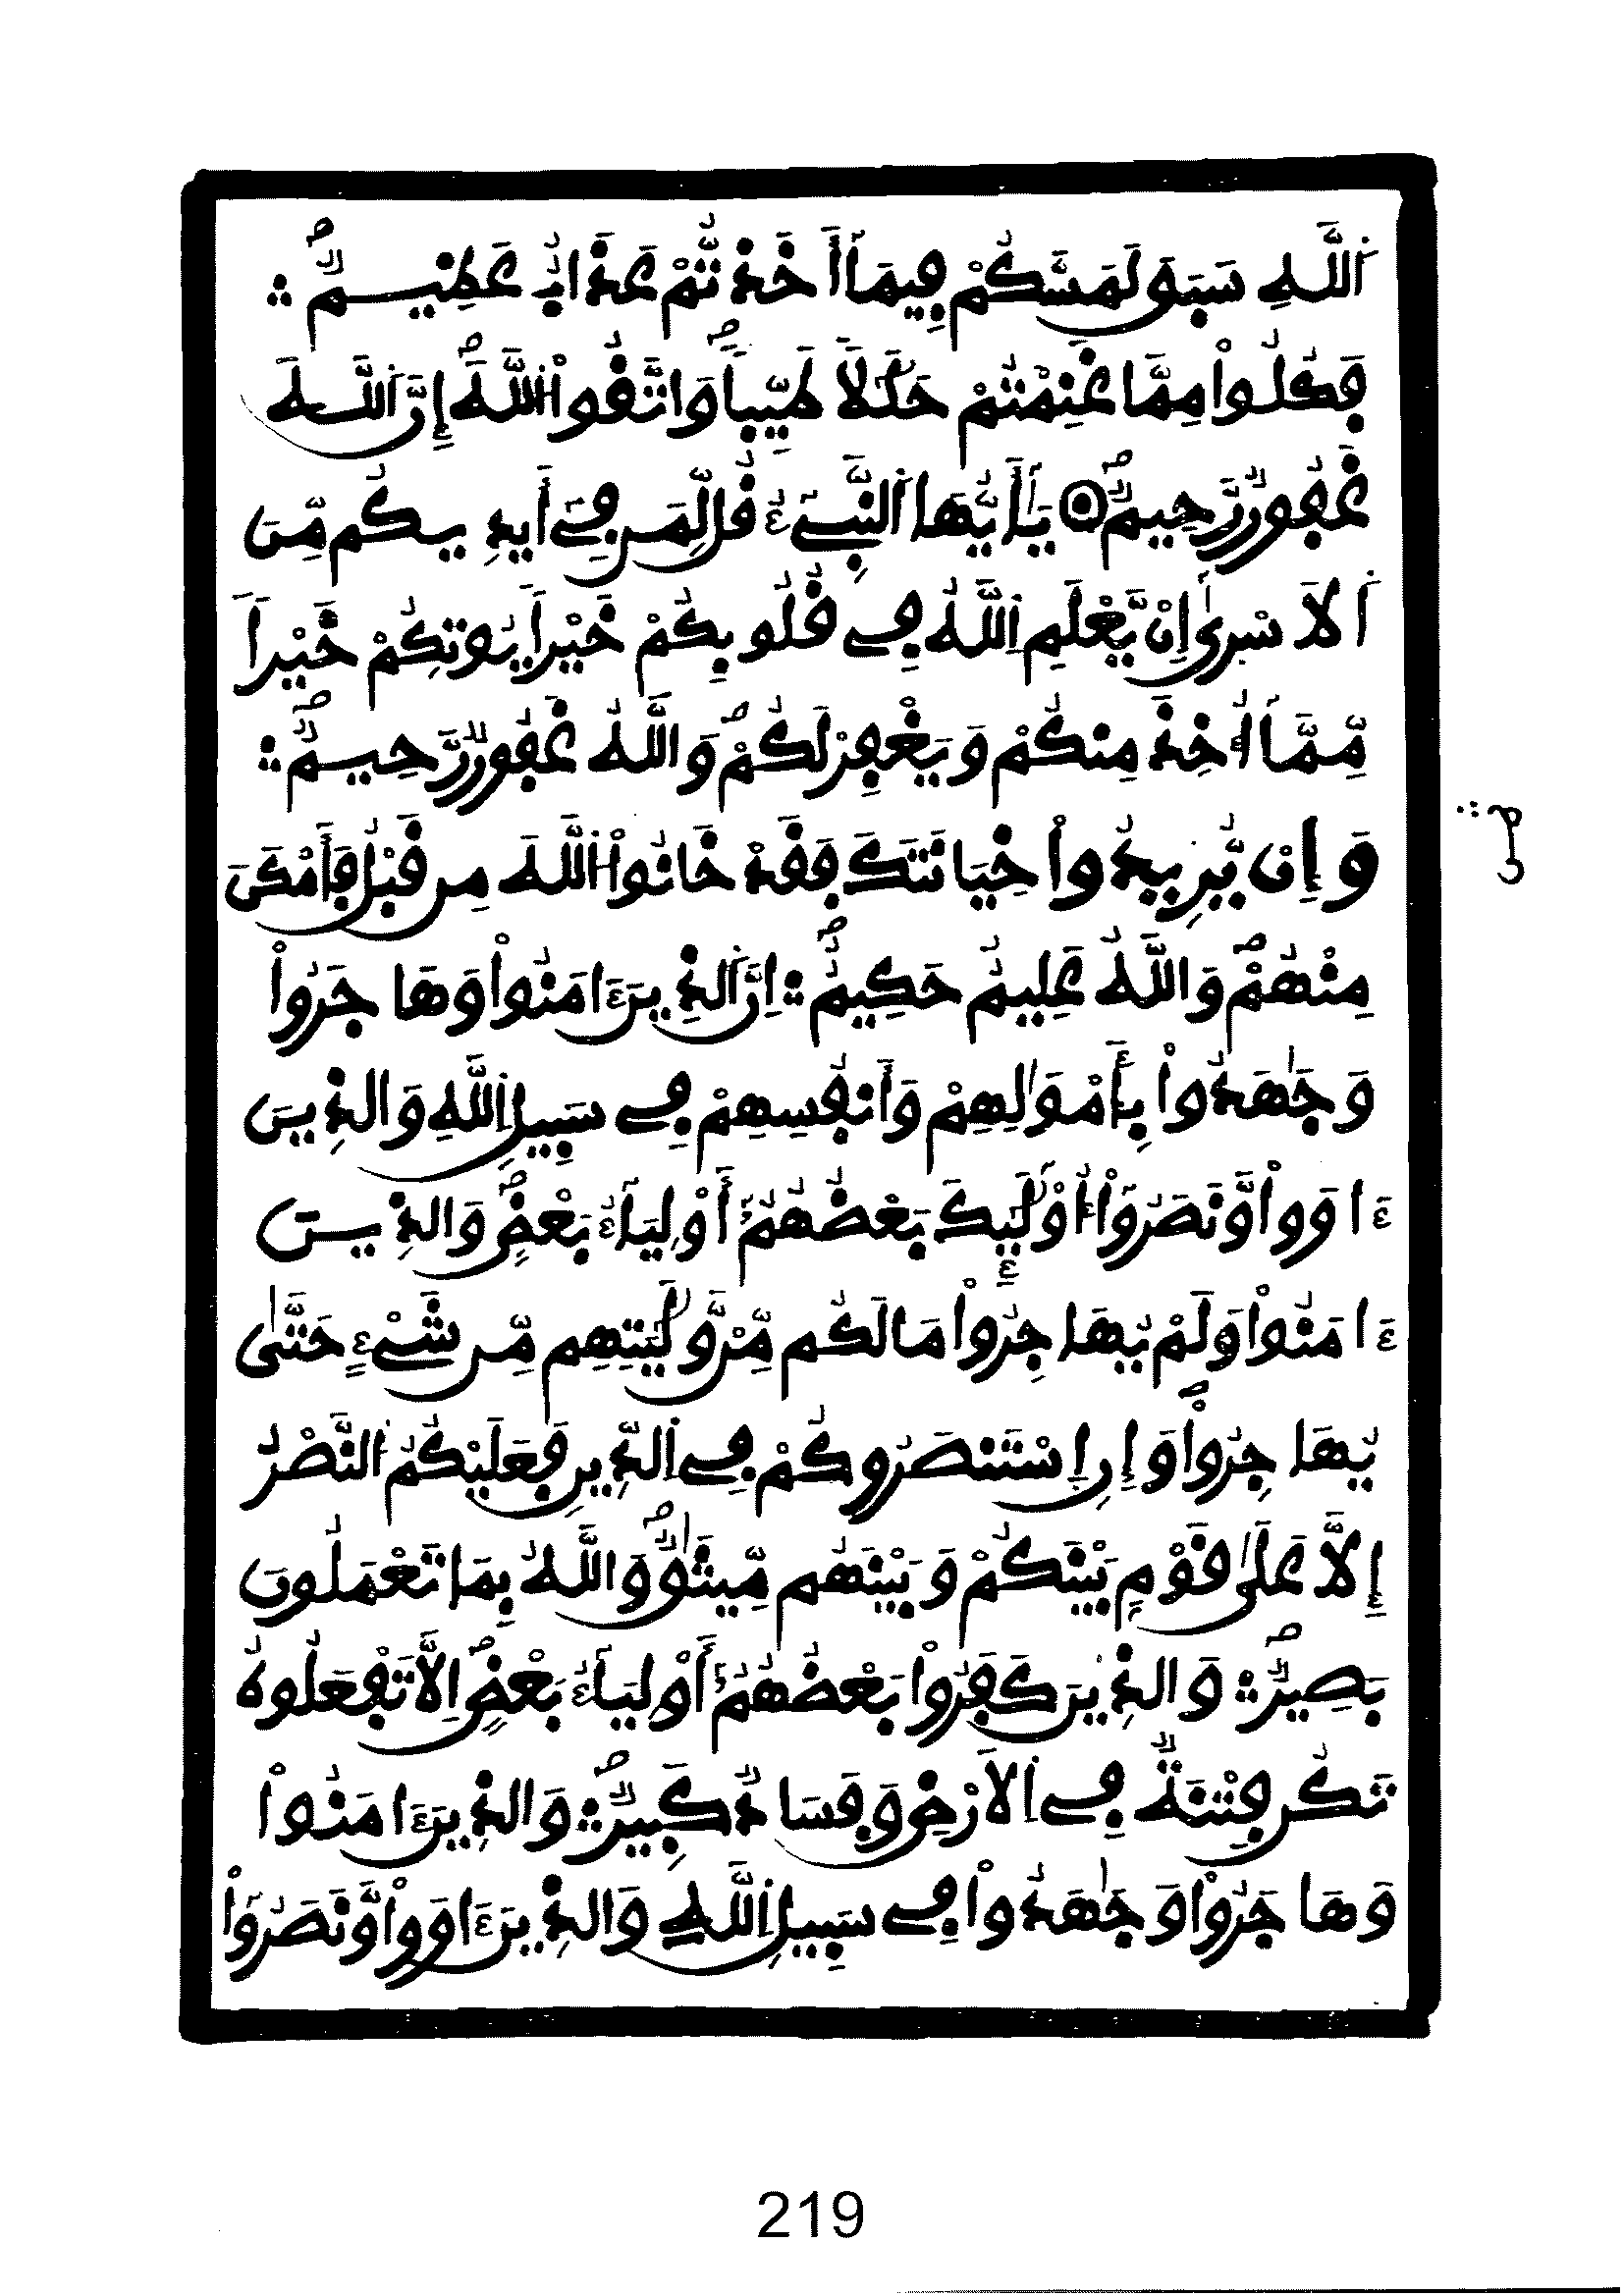 اَللَّهِ سَبَقَ لَمَسَّكُمْ فِيمَا أَخَذتُّمْ عَذَابٌ عَظِيمٌ ۝
فَكُلُواْ مِمَّا غَنِمْتُمْ حَلَٰلاً طَيِّباً وَاتَّقُواْ اُللَّهَ إِنَّ اَللَّهَ
غَفُورٌ رَّحِيمٌ ۝ يَٰأَيُّهَا اَلنَّبِيءُ قُل لِّمَن فِي أَيْدِيكُم مِّنَ
اَلَاسْرَىٰ إِنْ يَّعْلَمِ اِللَّهُ فِي قُلُوبِكُمْ خَيْراً يُوتِكُمْ خَيْراً
مِّمَّا أُخِذَ مِنكُمْ وَيَغْفِرْ لَكُمْ وَاللَّهُ غَفُورٌ رَّحِيمٌ ۝
وَإِنْ يُّرِيدُواْ خِيَانَتَكَ فَقَدْ خَانُواْ اُللَّهَ مِن قَبْلُ فَأَمْكَنَ
مِنْهُمْ وَاللَّهُ عَلِيمٌ حَكِيمٌ ۝ اِنَّ اَلذِينَ ءَامَنُواْ وَهَاجَرُواْ
وَجَٰهَدُواْ بِأَمْوَٰلِهِمْ وَأَنفُسِهِمْ فِي سَبِيلِ اِللَّهِ وَالذِينَ
ءَاوَواْ وَّنَصَرُواْ أُوْلَٰئِكَ بَعْضُهُمُ أَوْلِيَاءُ بَعْضٍ وَالذِينَ
ءَامَنُواْ وَلَمْ يُهَاجِرُواْ مَا لَكُم مِّنْ وَّلَٰيَتِهِم مِّن شَيْءٍ حَتَّىٰ
يُهَاجِرُواْ وَإِنِ اِسْتَنصَرُوكُمْ فِي اِلدِّينِ فَعَلَيْكُمُ اُلنَّصْرُ
إِلَّا عَلَىٰ قَوْمٍ بَيْنَكُمْ وَبَيْنَهُم مِّيثَٰقٌ وَاللَّهُ بِمَا تَعْمَلُونَ
بَصِيرٌ ۝ وَالذِينَ كَفَرُواْ بَعْضُهُمُ أَوْلِيَاءُ بَعْضٍ اِلَّا تَفْعَلُوهُ
تَكُن فِتْنَةٌ فِي اِلَارْضِ وَفَسَادٌ كَبِيرٌ ۝ وَالذِينَ ءَامَنُواْ
وَهَاجَرُواْ وَجَٰهَدُواْ فِي سَبِيلِ اِللَّهِ وَالذِينَ ءَاوَواْ وَّنَصَرُواْ
219